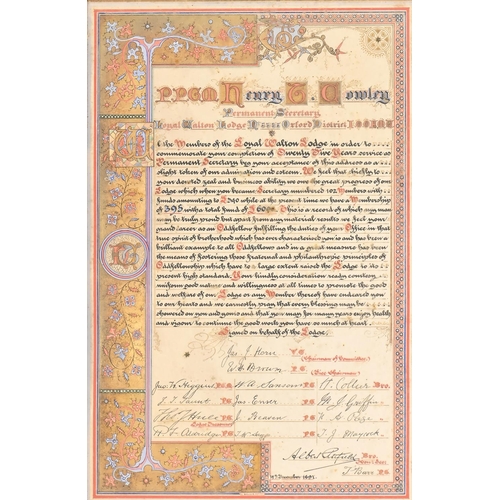 P.P.G.M Henry T. Cowley
Permanent Secretary
Loyal Walton Lodge Oxford District I.O.O.F.M.U
We the Members of the Loyal Walton Lodge in order to
commemorate your completion of Twenty Five Years service as
Permanent Secretary beg your acceptance of this address as a
slight token of our admiration and esteem We feel that chiefly to
your devoted zeal and business ability we owe the great progress of our
Lodge which when you became Secretary numbered 102 Members with
funds amounting to £340 while at the present time we have a Membership
of 395 with total fund of £6090. This is a record of which any man
may be truly proud but apart from any material results we feel your
grand career as an Oddfellow fulfilling the duties of your Office in that
true spirit of brotherhood which has ever characterised you is and has been a
brilliant example to all Oddfellows and in a great measure has been
the means of fostering those fraternal and philanthropic principles of
Oddfellowship which have to a large extent raised the Lodge to its
present high standard. Your kindly consideration ready courtesy
uniform good nature and willingness at all times to promote the good
and welfare of our Lodge or any Member thereof have endeared you
to our hearts and we earnestly pray that every blessing may be
showered on you and yours and that you may for many years enjoy health
and vigour to continue the good work you have so much at heart.
Signed on behalf of the Lodge
Jas J. Horn P.G
Chairman of Committee
W. E. Brown P.G
Vice Chairman
Jno W. Higgins P.G H. A. Sansom P.G A. Collier Bro.
Jas Enser P.G M. J. Griffin
J. Beavin P.G
W. Aldridge P.G P.G T. J. Maycock
Albert
Bro.
P.G
December